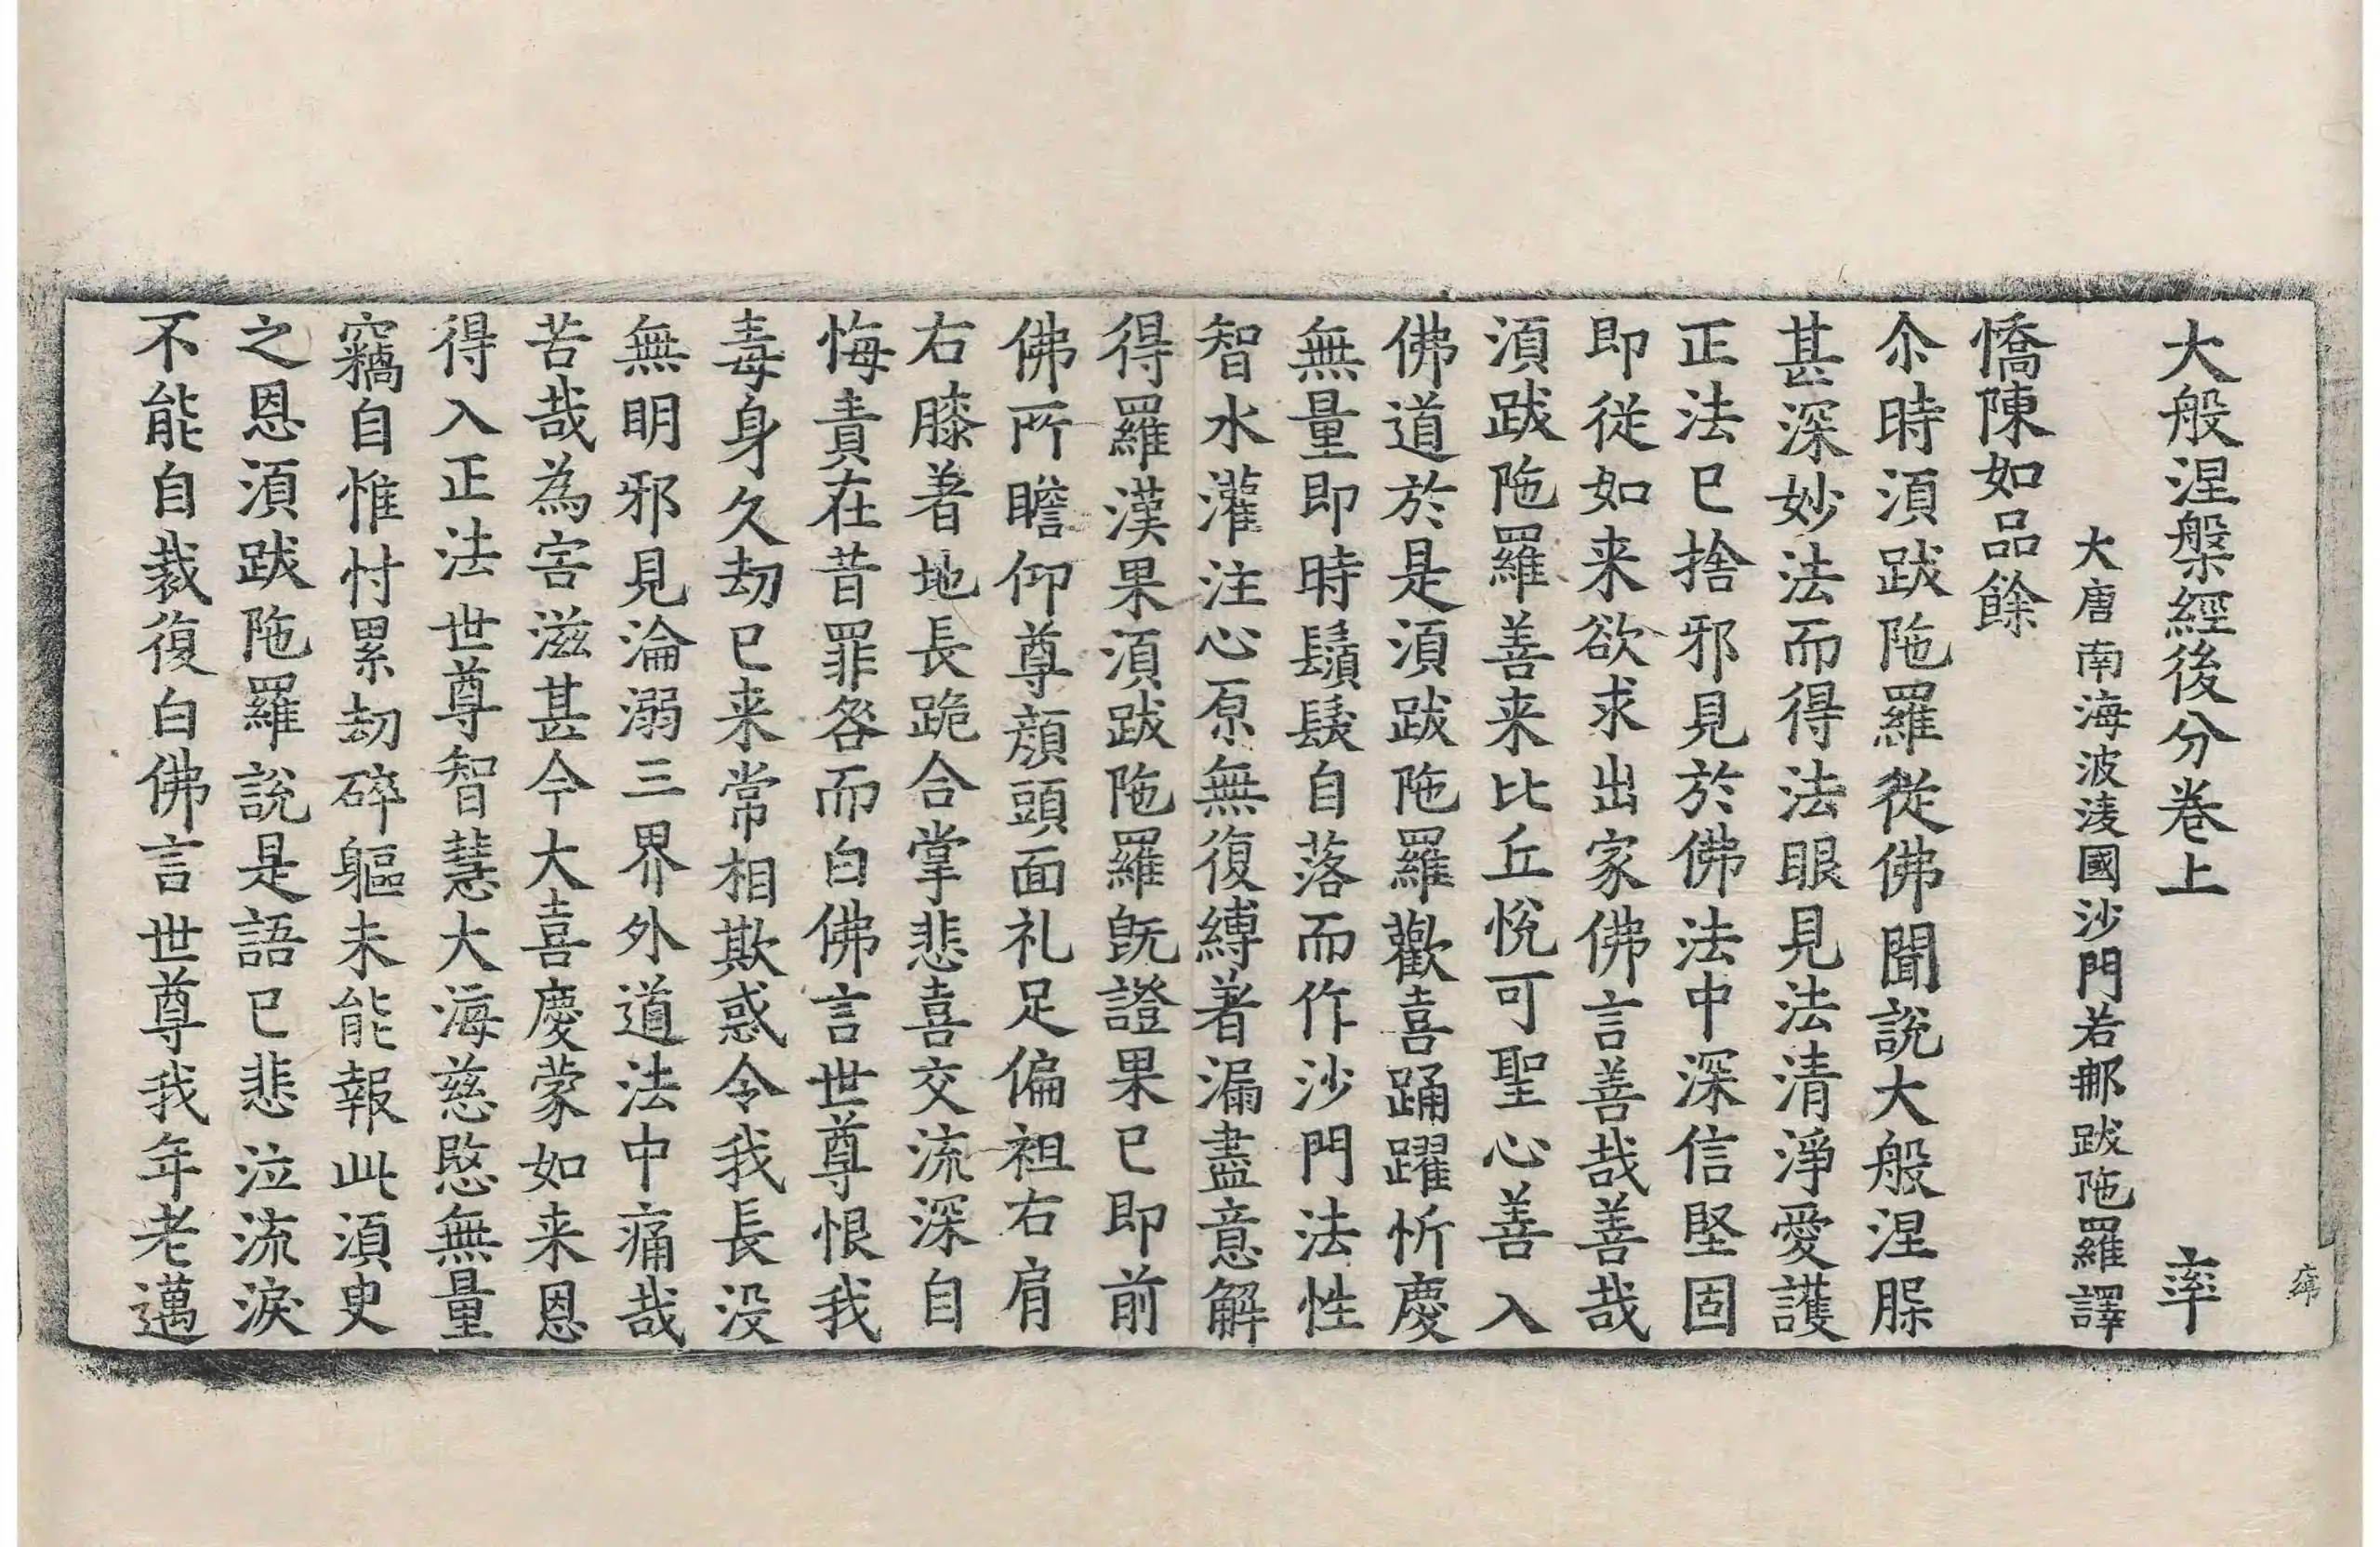 大般涅槃經後分卷上 率
大唐南海波淩國沙門若那跋陁羅譯
憍陳如品餘
尒時湏跋陁羅從佛聞說大般涅槃
甚深妙法而得法眼見法清淨愛護
正法已捨邪見於佛法中深信堅固
即從如来欲求出家佛言善哉善哉
湏跋陁羅善来比丘悅可聖心善入
佛道於是湏跋陁羅歡喜踊躍忻慶
無量即時鬚髮自落而作沙門法性
智水灌注心原無復縛著漏盡意解
得羅漢果湏跋陁羅旣證果已即前
佛所瞻仰尊顔頭面礼足偏袒右肩
右膝著地長跪合掌悲喜交流深自
悔責在昔罪咎而白佛言世尊恨我
毒身久劫已来常相欺惑令我長没
無明邪見淪溺三界外道法中痛哉
苦哉為害滋甚今大喜慶蒙如来恩
得入正法世尊智慧大海慈愍無量
竊自惟忖累劫碎軀未能報此湏臾
之恩湏跋陁羅說是語已悲泣流淚
不能自裁復白佛言世尊我年老邁